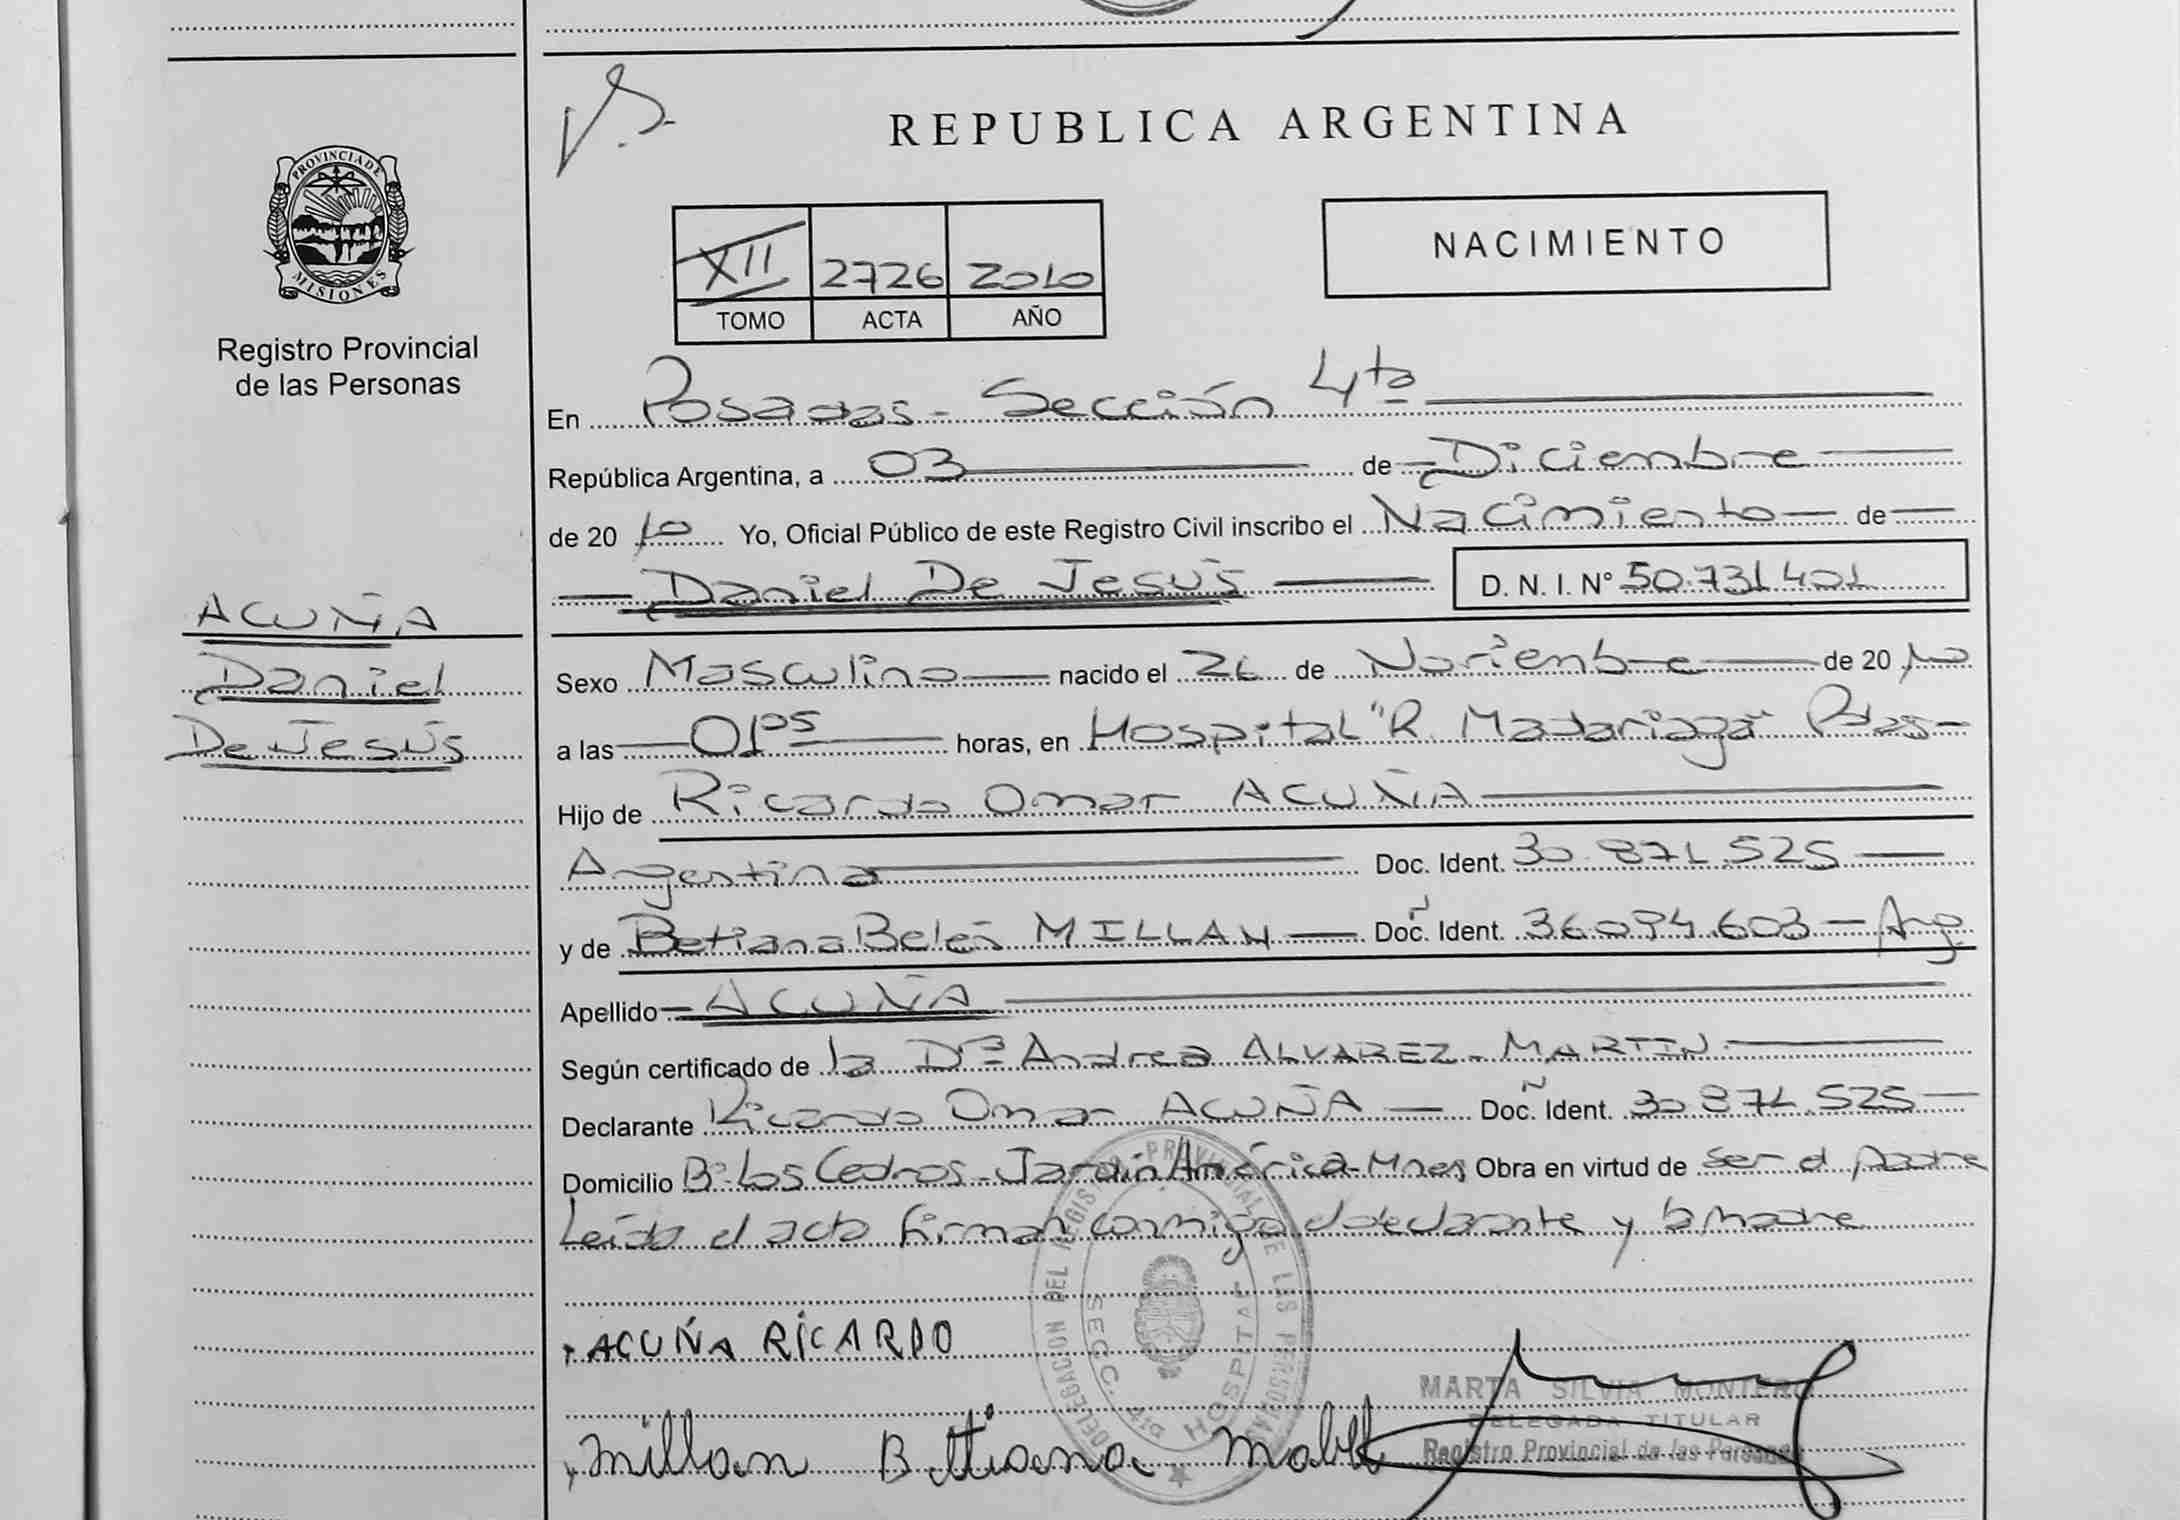 PROVINCIA DE
MISIONES
Registro Provincial
de las Personas
ACUÑA
Daniel
De Jesús
V.S.
REPUBLICA ARGENTINA
XII 2726 2010
TOMO ACTA AÑO
NACIMIENTO
En Posadas - Sección 4ta
República Argentina, a 03 de Diciembre
de 2010 Yo, Oficial Público de este Registro Civil inscribo el Nacimiento de
Daniel De Jesús D. N. I. Nº 50.731.401
Sexo Masculino nacido el 26 de Noviembre de 2010
a las 01 05 horas, en Hospital "R. Madariaga" Pdas-
Hijo de Ricardo Omar ACUÑA
Argentina Doc. Ident. 30.871.525
y de Betiana Belén MILLAN Doc. Ident. 36.094.603 - Arg
Apellido ACUÑA
Según certificado de la Dra Andrea ALVAREZ - MARTIN.
Declarante Ricardo Omar ACUÑA Doc. Ident. 30.871.525
Domicilio Bº Los Cedros - Jardín América - Mnes Obra en virtud de ser el padre
Leída el acta firman conmigo el declarante y la madre
ACUÑA RICARDO
DELEGACION DEL REGISTRO PROVINCIAL DE LAS PERSONAS
SECC. 4ta HOSPITAL
MARTA SILVIA MONTERO
DELEGADA TITULAR
Registro Provincial de las Personas
Millan Bettiana